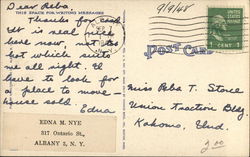 Dear Reba
THIS SPACE FOR WRITING MESSAGES
Thanks for card.
It is real nice
here now, not too
hot which suits
me all right. I
have to look for
a place to move -
house sold.
Edna
EDNA M. NYE
317 Ontario St.,
ALBANY 3, N. Y.
9/9/48
POST CARD
1 CENT 1
Miss Reba T. Storce
Union Traction Bldg.
Kokomo, Ind.
2.00